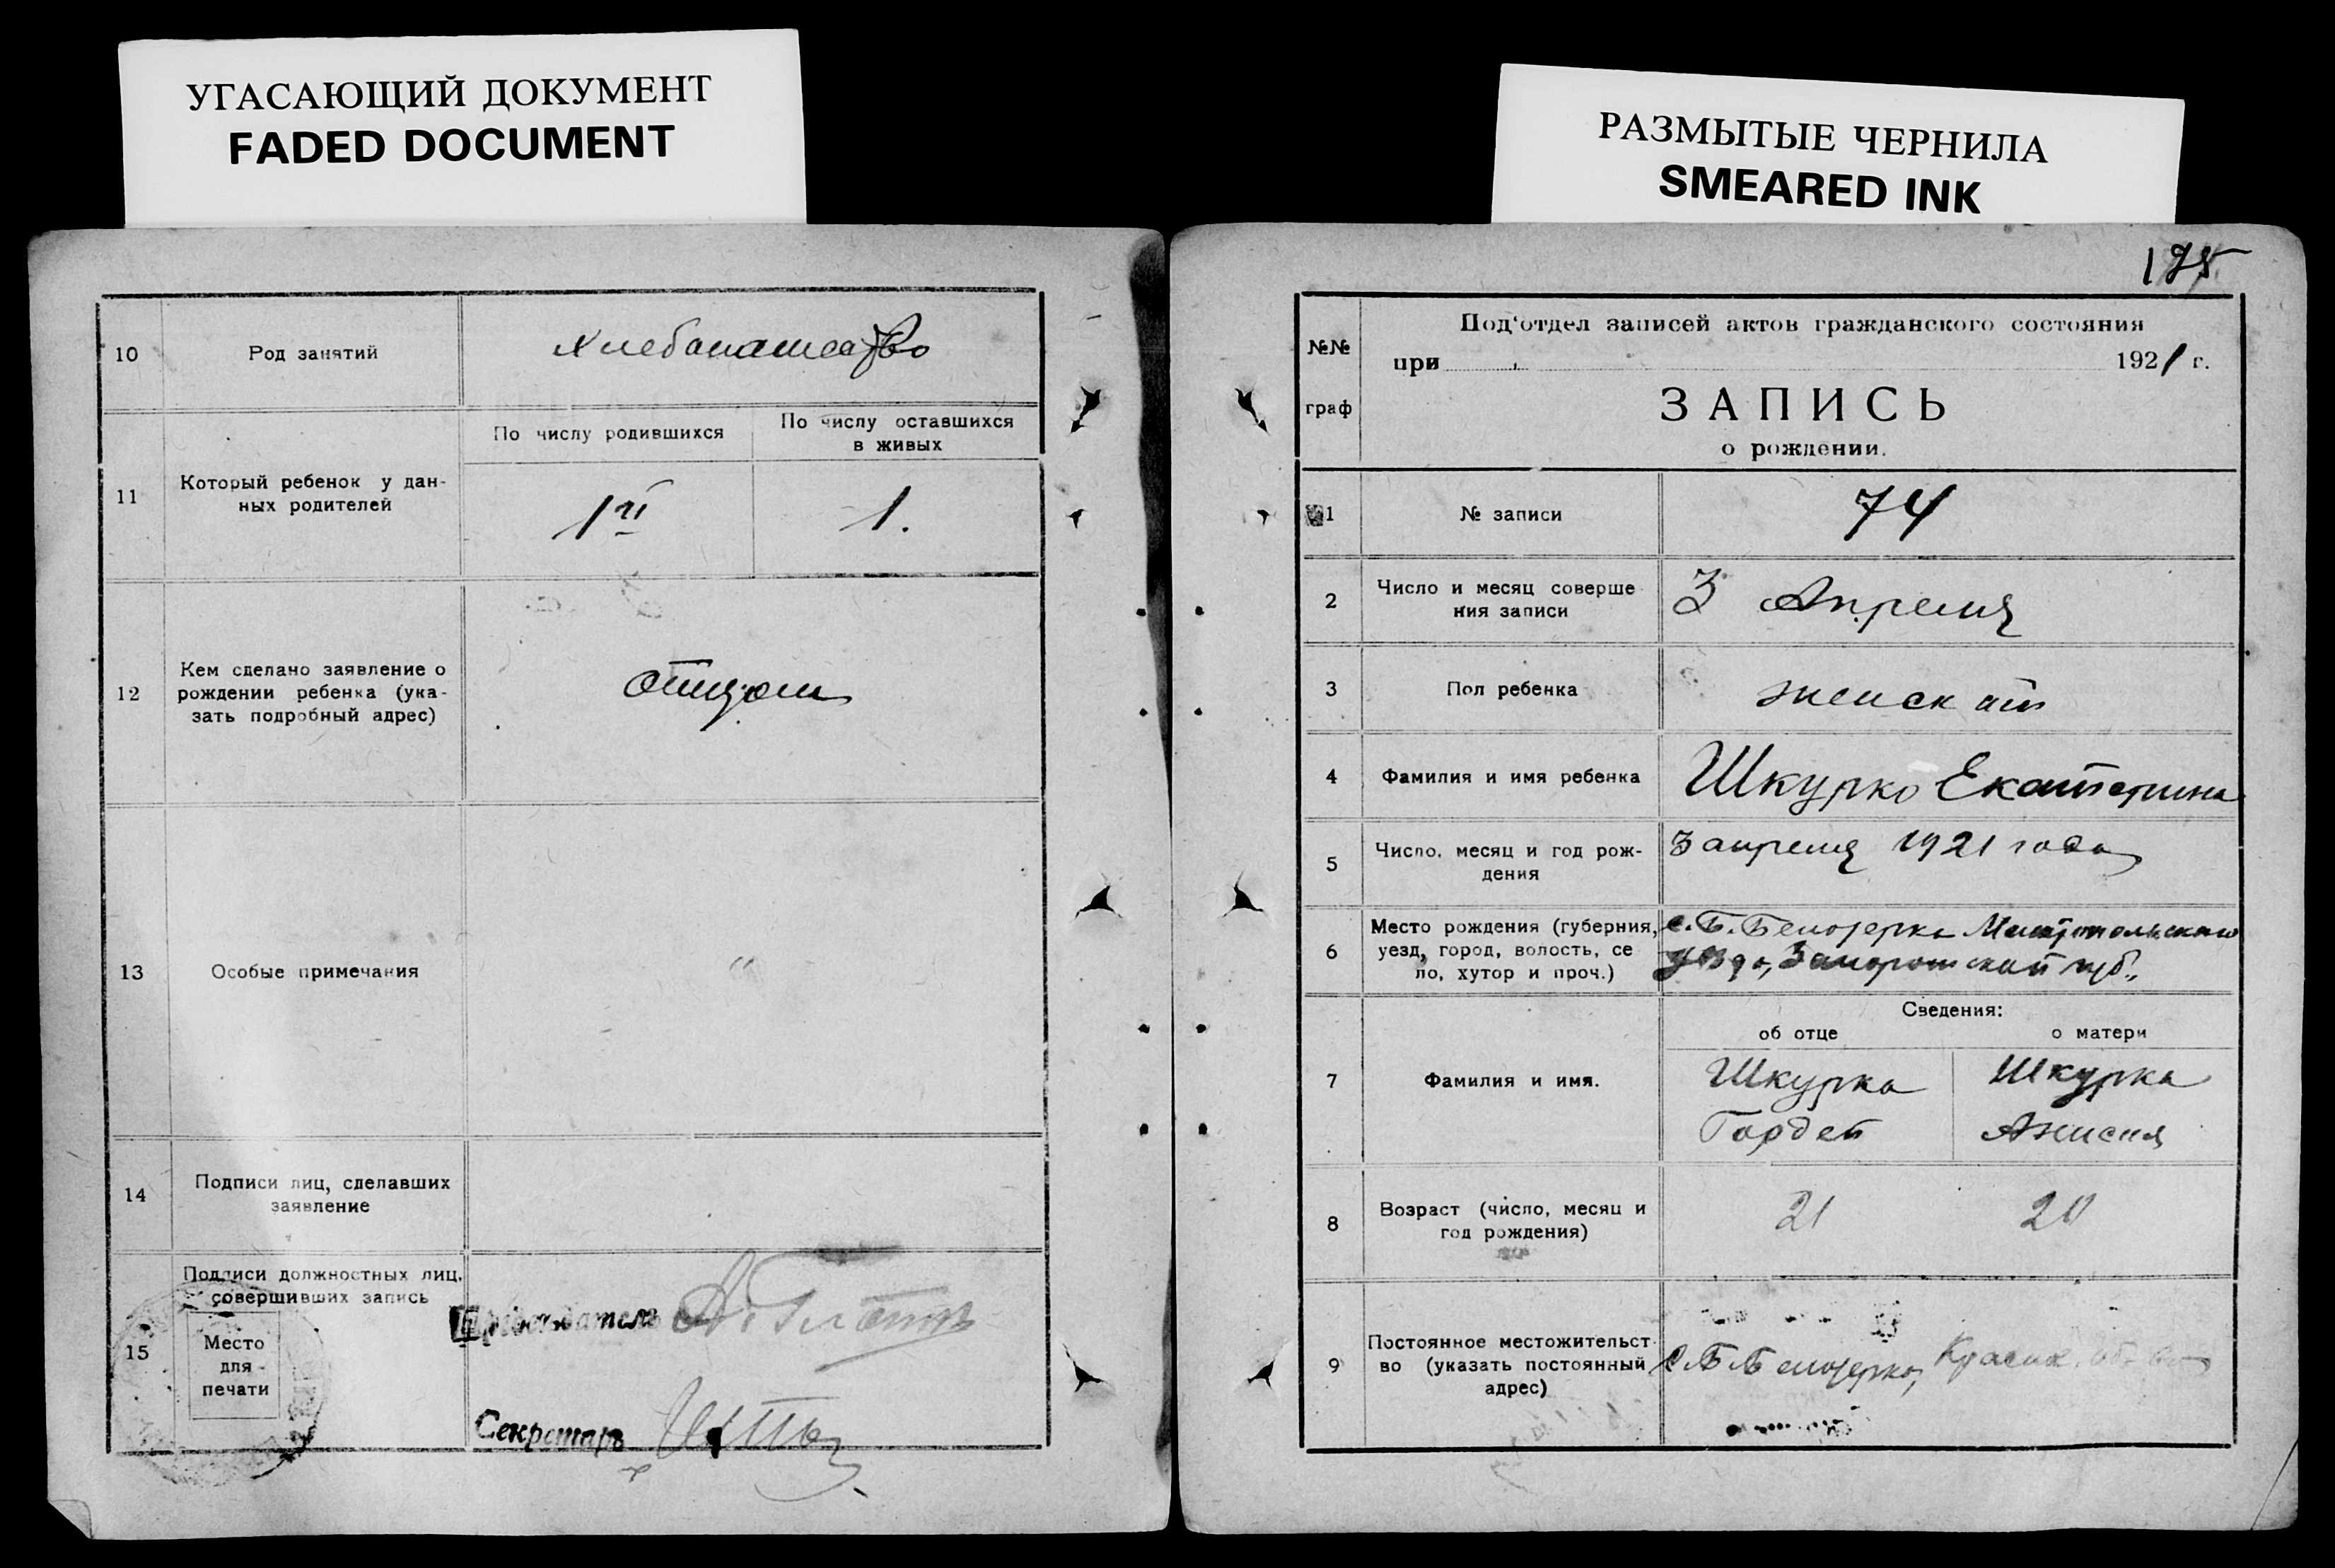 УГАСАЮЩИЙ ДОКУМЕНТ
FADED DOCUMENT
10
Род занятий
Хлебопашество
11
Который ребенок у дан-
ных родителей
По числу родившихся
По числу оставшихся
в живых
1й
1.
12
Кем сделано заявление о
рождении ребенка (ука-
зать подробный адрес)
отцом
13
Особые примечания
"
14
Подписи лиц, сделавших
заявление
15
Подписи должностных лиц,
совершивших запись
Место
для
печати
Председатель
Секретарь
РАЗМЫТЫЕ ЧЕРНИЛА
SMEARED INK
195
№№
граф
Под'отдел записей актов гражданского состояния
при 1921 г.
ЗАПИСЬ
о рождении.
1
№ записи
74
2
Число и месяц соверше
ния записи
3 Апреля
3
Пол ребенка
женск
4
Фамилия и имя ребенка
Шкурко Екатерина
5
Число, месяц и год рож-
дения
3 апреля 1921 года
6
Место рождения (губерния,
уезд, город, волость, се
ло, хутор и проч.)
с. Б. Белозерка Мелитопольского
уезда, Запорожской губ.
Сведения:
об отце
о матери
7
Фамилия и имя.
Шкурка
Гордей
Шкурка
Анисия
8
Возраст (число, месяц и
год рождения)
21
20
9
Постоянное местожительст
во (указать постоянный
адрес)
с. Б. Белозерка,